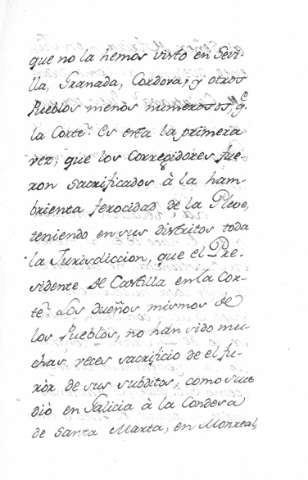 que no la hemos visto en Sevi-
lla, Granada, Cordova, y otros
Pueblos menos numerosos, q.e
la Corte. Es esta la primera
vez, que los Corregidores fue-
ron sacrificados à la ham-
brienta ferocidad de la Pleve,
teniendo en sus distritos toda
la Jurisdiccion, que el Pre-
sidente de Castilla en la Cor-
te: a los dueños mismos de
los Pueblos, no han sido mu-
chas veces sacrificio de el fu-
ror de sus subditos, como suce
dió en Galicia à la Condesa
de Santa Marta, en Monreal,